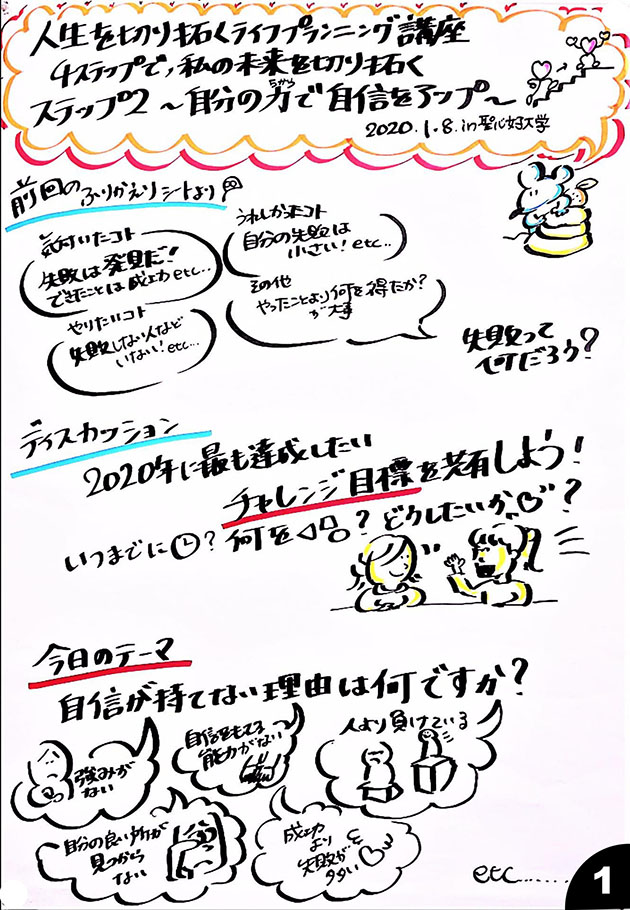 人生を切り拓くライフプランニング講座
4ステップで、私の未来を切り拓く
ステップ2 ～自分の力で自信をアップ～
ちから
2020.1.8. in 聖心女子大学
前回のふりかえりシートより
気付いたコト
失敗は発見だ!
できたことは成功 etc..
うれしかったコト
自分の失敗は
小さい! etc..
やりたいコト
失敗しない人など
いない! etc...
その他
やったことより何を得たか?
が大事
失敗って
何だろう?
ディスカッション
2020年に最も達成したい
チャレンジ目標を共有しよう!
いつまでに? 何を? どうしたいか?
今日のテーマ
自信が持てない理由は何ですか?
強みが
ない
自信をもてる
能力がない
人より負けている
自分の良い所が
見つから
ない
成功
より
失敗が
多い
etc.......
1